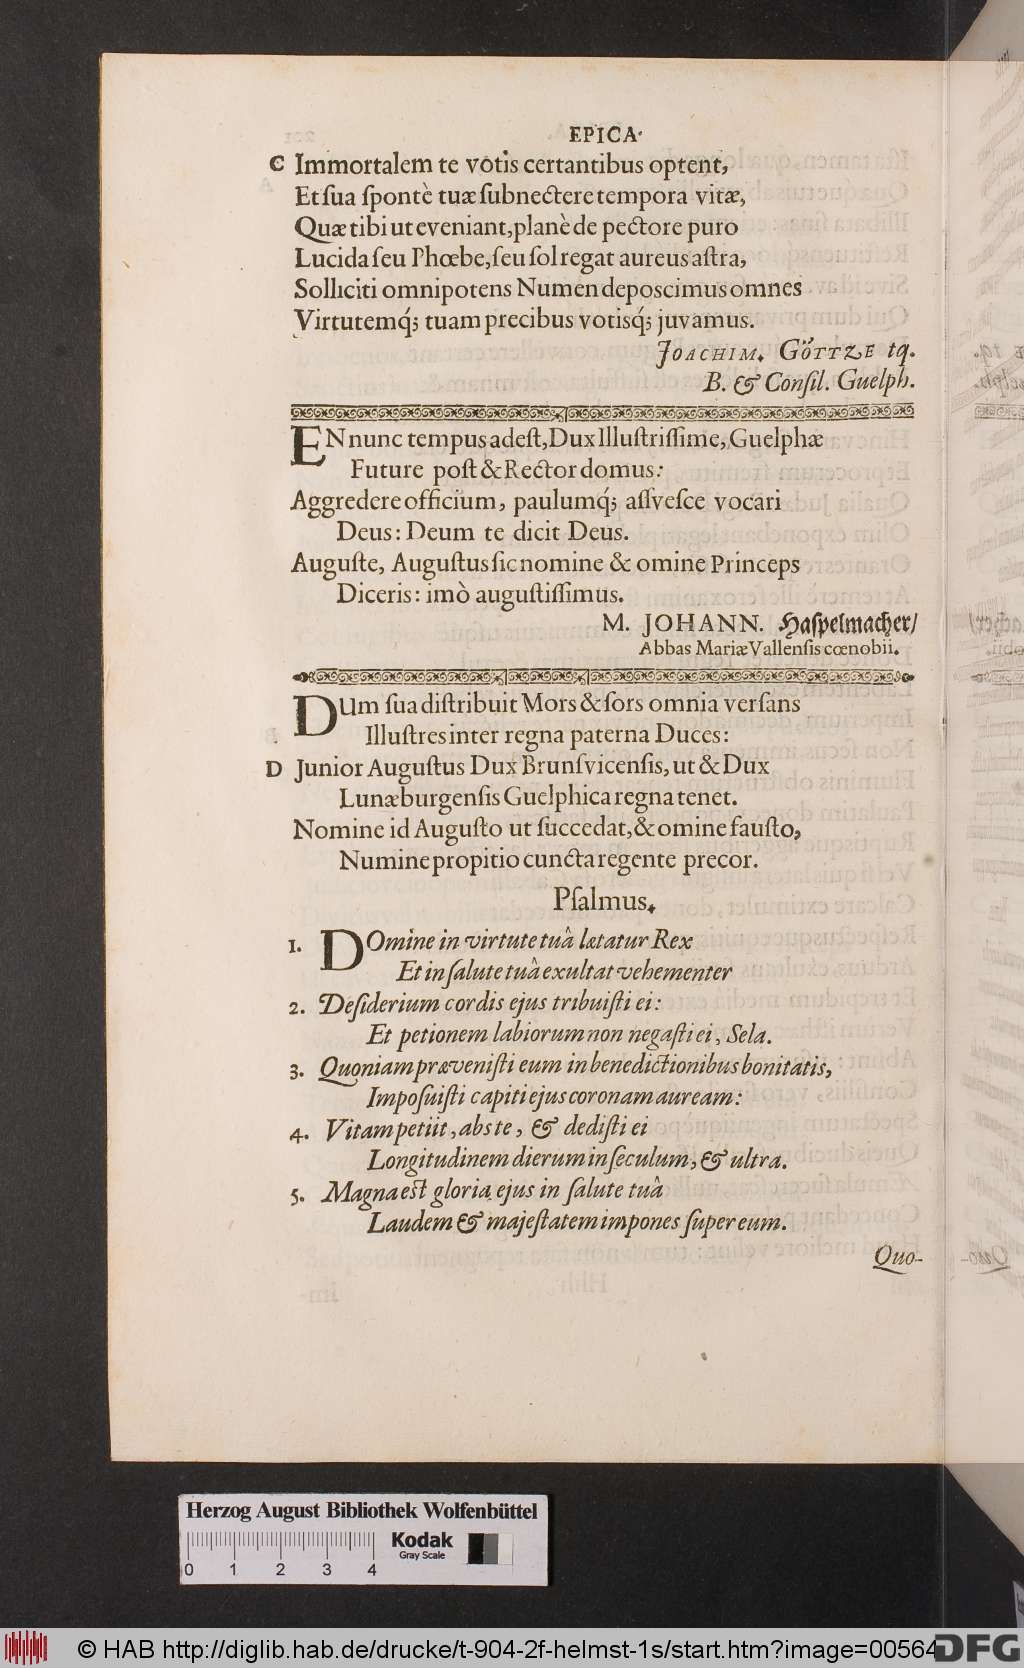 EPICA.
C Immortalem te votis certantibus optent,
Et ſua ſpontè tuæ ſubnectere tempora vitæ,
Quæ tibi ut eveniant, planè de pectore puro
Lucida ſeu Phœbe, ſeu ſol regat aureus aſtra,
Solliciti omnipotens Numen depoſcimus omnes
Virtutemq́; tuam precibus votisq́; juvamus.
JOACHIM. GÖTTZE tq.
B. & Conſil. Guelph.
EN nunc tempus adeſt, Dux Illuſtriſſime, Guelphæ
Future poſt & Rector domus:
Aggredere officium, paulumq́; aſſveſce vocari
Deus: Deum te dicit Deus.
Auguſte, Auguſtus ſic nomine & omine Princeps
Diceris: imò auguſtiſſimus.
M. JOHANN. Haſpelmacher/
Abbas Mariæ Vallenſis cœnobii.
DUm ſua diſtribuit Mors & ſors omnia verſans
Illuſtres inter regna paterna Duces:
D Junior Auguſtus Dux Brunſvicenſis, ut & Dux
Lunæburgenſis Guelphica regna tenet.
Nomine id Auguſto ut ſuccedat, & omine fauſto,
Numine propitio cuncta regente precor.
Pſalmus.
1. DOmine in virtute tuâ lætatur Rex
Et in ſalute tuâ exultat vehementer
2. Deſiderium cordis ejus tribuiſti ei:
Et petionem labiorum non negaſti ei, Sela.
3. Quoniam præveniſti eum in benedictionibus bonitatis,
Impoſuiſti capiti ejus coronam auream:
4. Vitam petiit, abs te, & dediſti ei
Longitudinem dierum in ſeculum, & ultra.
5. Magna eſt gloria ejus in ſalute tuâ
Laudem & majeſtatem impones ſuper eum.
Quo-
Herzog August Bibliothek Wolfenbüttel
0 1 2 3 4
Kodak
Gray Scale
© HAB http://diglib.hab.de/drucke/t-904-2f-helmst-1s/start.htm?image=00564
DFG